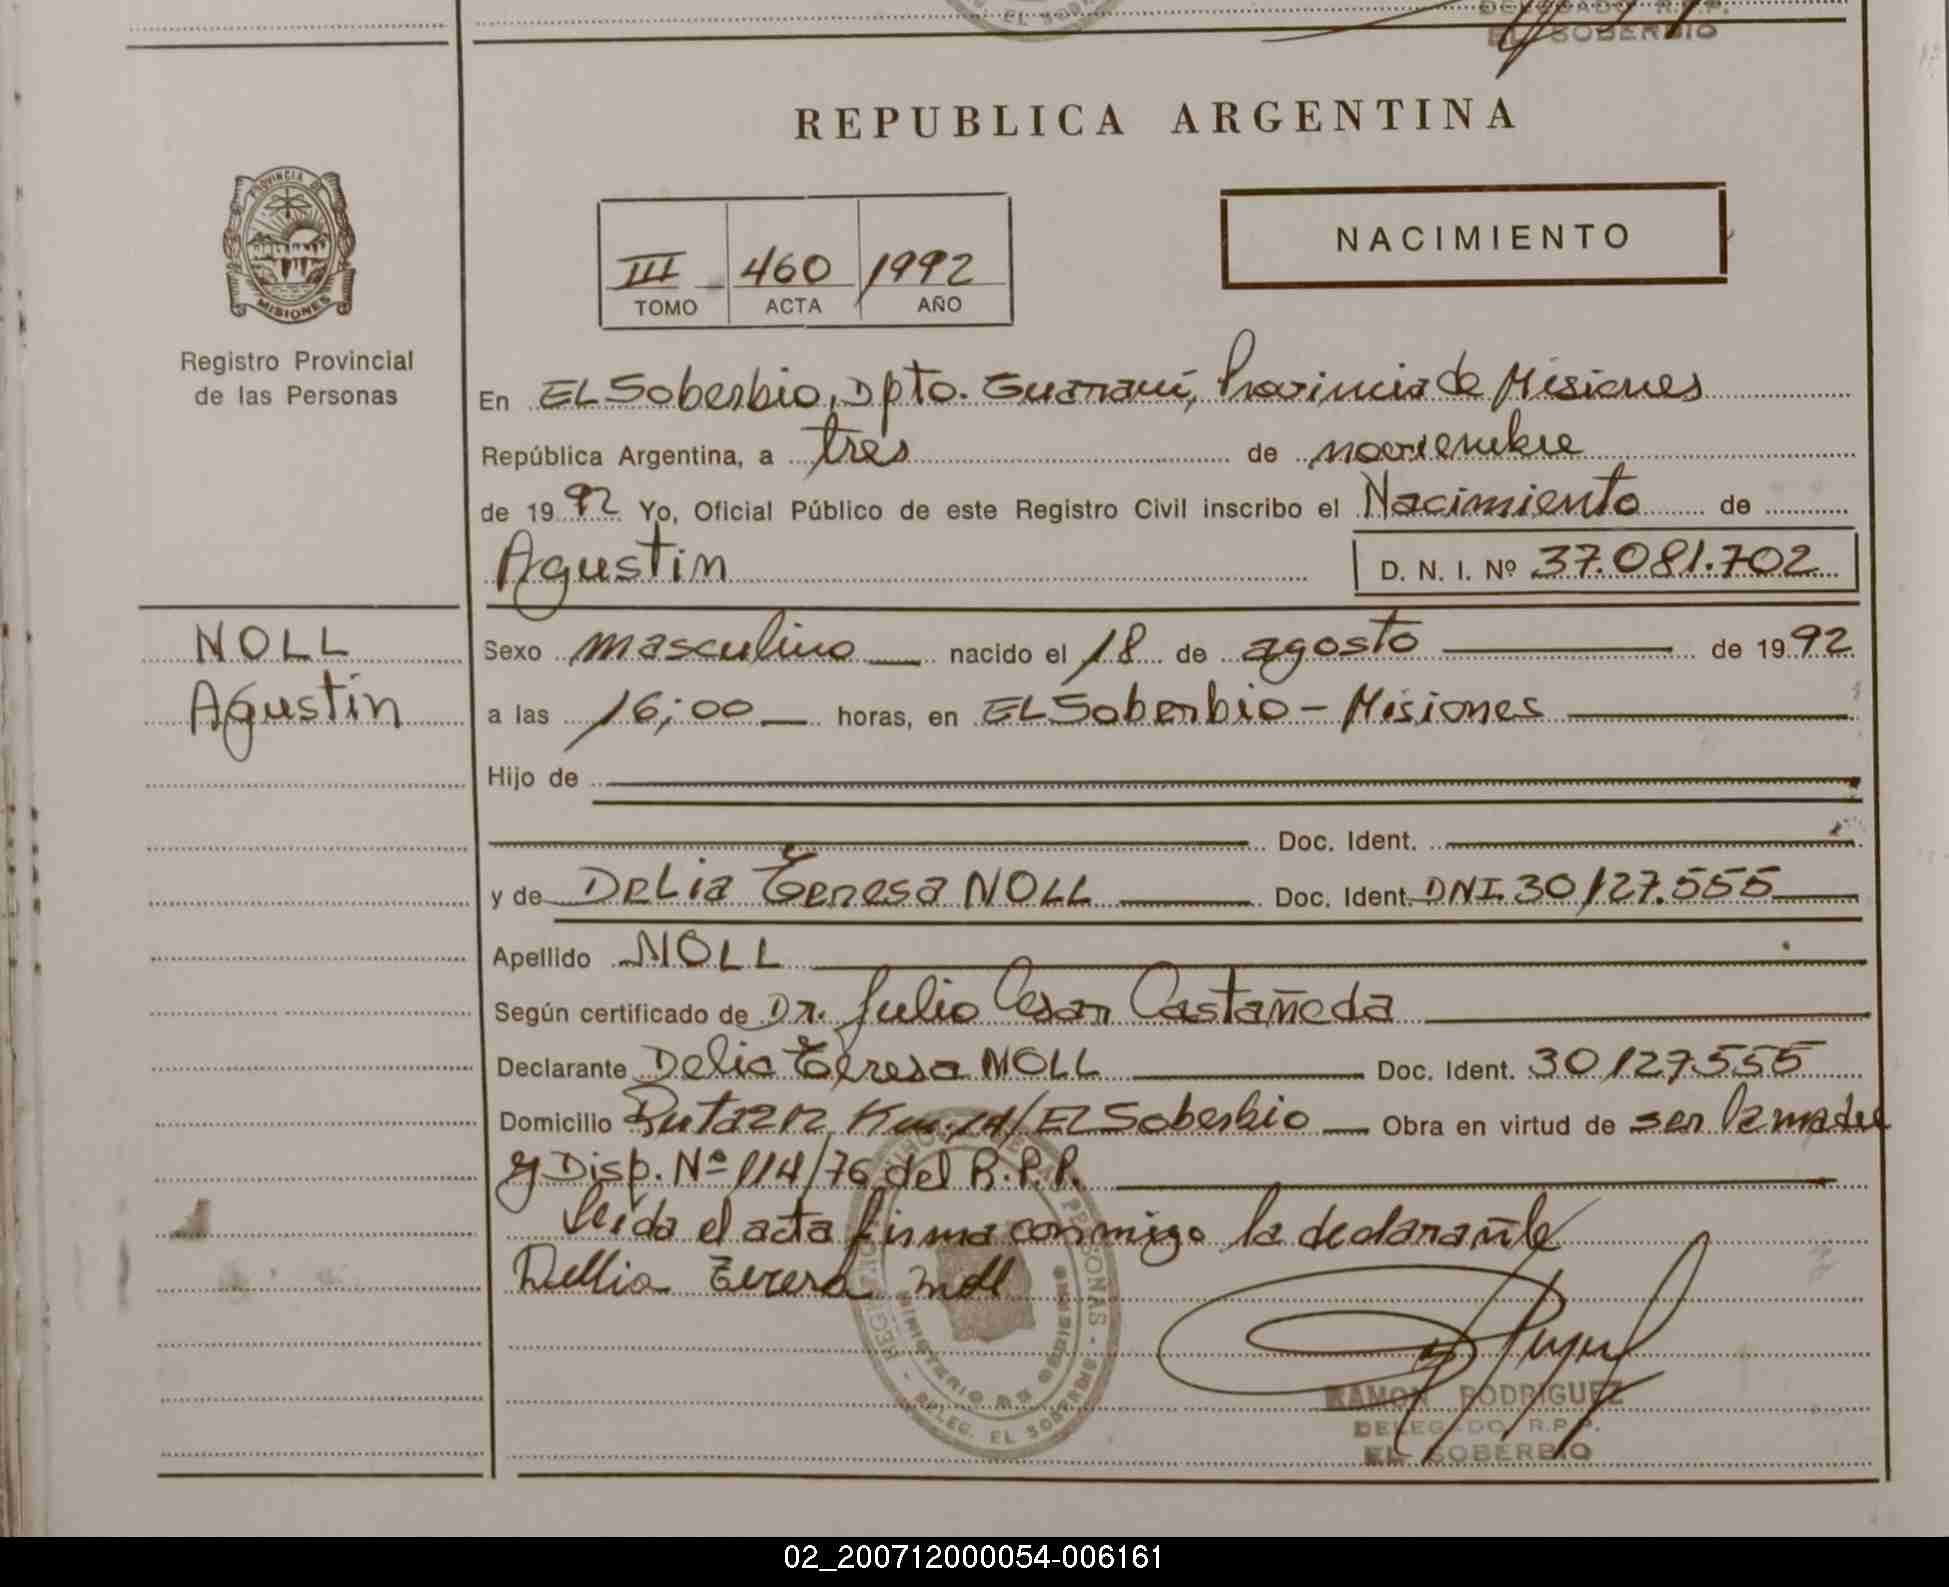 DELEGADO R.P.P.
EL SOBERBIO
REPUBLICA ARGENTINA
PROVINCIA DE
MISIONES
Registro Provincial
de las Personas
III 460 1992
TOMO ACTA AÑO
NACIMIENTO
En EL Soberbio, Dpto. Guaraní, Provincia de Misiones
República Argentina, a tres de noviembre
de 1992 Yo, Oficial Público de este Registro Civil inscribo el Nacimiento de
Agustin D. N. I. Nº 37.081.702
NOLL
Agustin
Sexo masculino nacido el 18 de agosto de 1992
a las 16;00 horas, en EL Soberbio - Misiones
Hijo de
Doc. Ident.
y de Delia Teresa NOLL Doc. Ident. DNI. 30127.555
Apellido NOLL
Según certificado de Dr. Julio Cesar Castañeda
Declarante Delia Teresa NOLL Doc. Ident. 30127.555
Domicilio Ruta 212 Km. 14/EL Soberbio Obra en virtud de ser la madre
y Disp. Nº 114/76 del R.P.P.
leida el acta firma conmigo la declarante
Dellia Teresa Noll
REGISTRO PERSONAS
MINISTERIO DE GOBIERNO
DELEG. EL SOBERBIO
RAMON RODRIGUEZ
DELEGADO R.P.P.
EL SOBERBIO
02_200712000054-006161